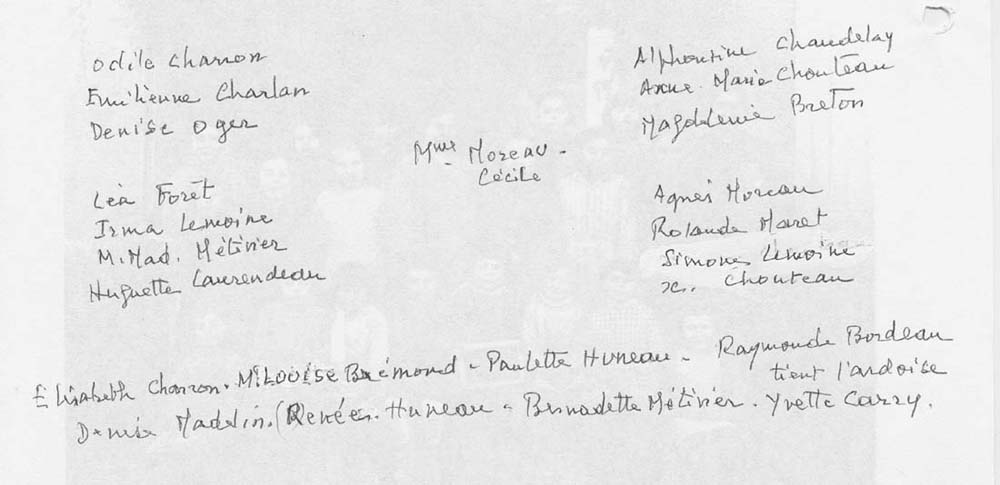 Odile Charron
Emilienne Charlan
Denise Oger
Mme Moreau -
Cécile
Alphonsine Chaudelay
Anne. Marie Chouteau
Magdeleine Breton
Léa Forêt
Irma Lemoine
M. Mad. Métivier
Huguette Laurendeau
Agnès Moreau
Rolande Maret
Simone Lemoine
x. Chouteau
Elisabeth Charron. M. Louise Brémond - Paulette Huneau - Raymonde Bordeau
tient l'ardoise
Denise Madelin. (Renée. Huneau - Bernadette Métivier. Yvette Carry.